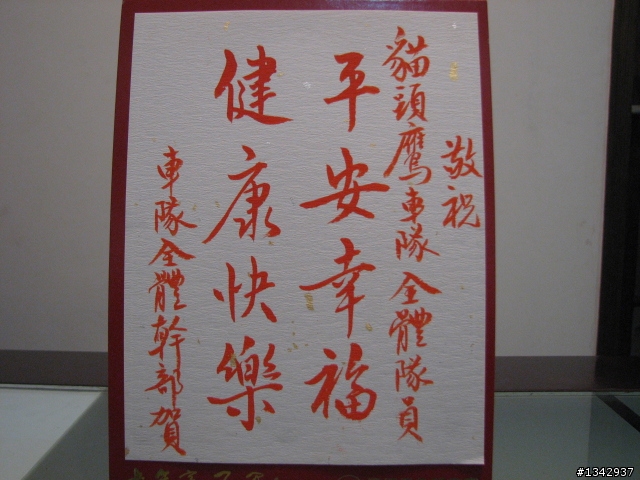 敬祝
貓頭鷹車隊全體隊員
平安幸福
健康快樂
車隊全體幹部賀
#1342937